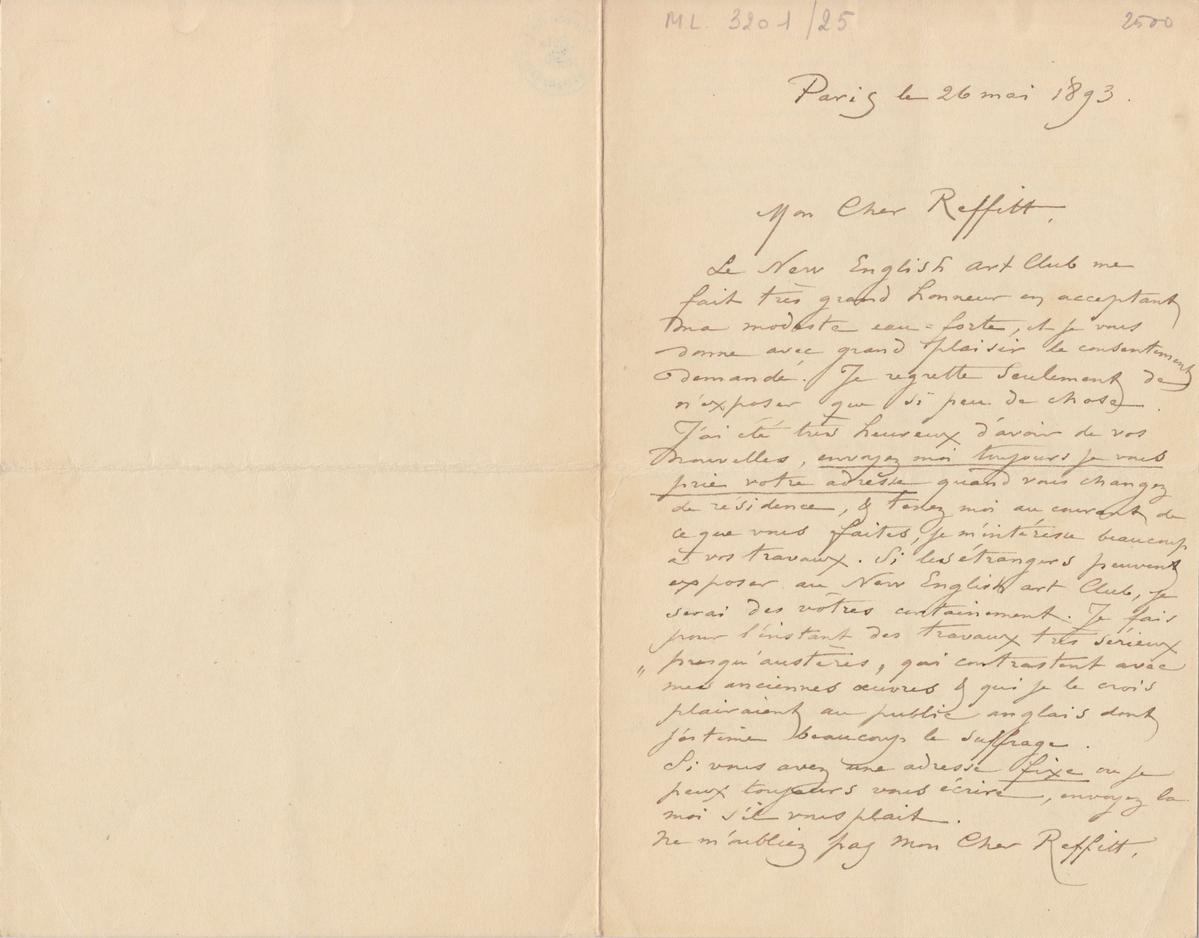 ML. 3201/25
2500
Paris le 26 mai 1893.
Mon Cher Reffitt,
Le New English art Club me
fait très grand honneur en acceptant
ma modeste eau=forte, et je vous
donne avec grand plaisir le consentement
demandé. Je regrette seulement de
n'exposer que si peu de chose.
J'ai été très heureux d'avoir de vos
nouvelles, envoyez moi toujours je vous
prie votre adresse quand vous changez
de résidence, & tenez moi au courant de
ce que vous faites, je m'intéresse beaucoup
à vos travaux. Si les étrangers peuvent
exposer au New English art Club, je
serai des vôtres certainement. Je fais
pour l'instant des travaux très sérieux
" presqu'austères, qui contrastent avec
mes anciennes œuvres & qui je le crois
plairaient au public anglais dont
j'estime beaucoup le suffrage.
Si vous avez une adresse fixe ou je
peux toujours vous écrire, envoyez la
moi s'il vous plait.
Ne m'oubliez pas mon Cher Reffitt,